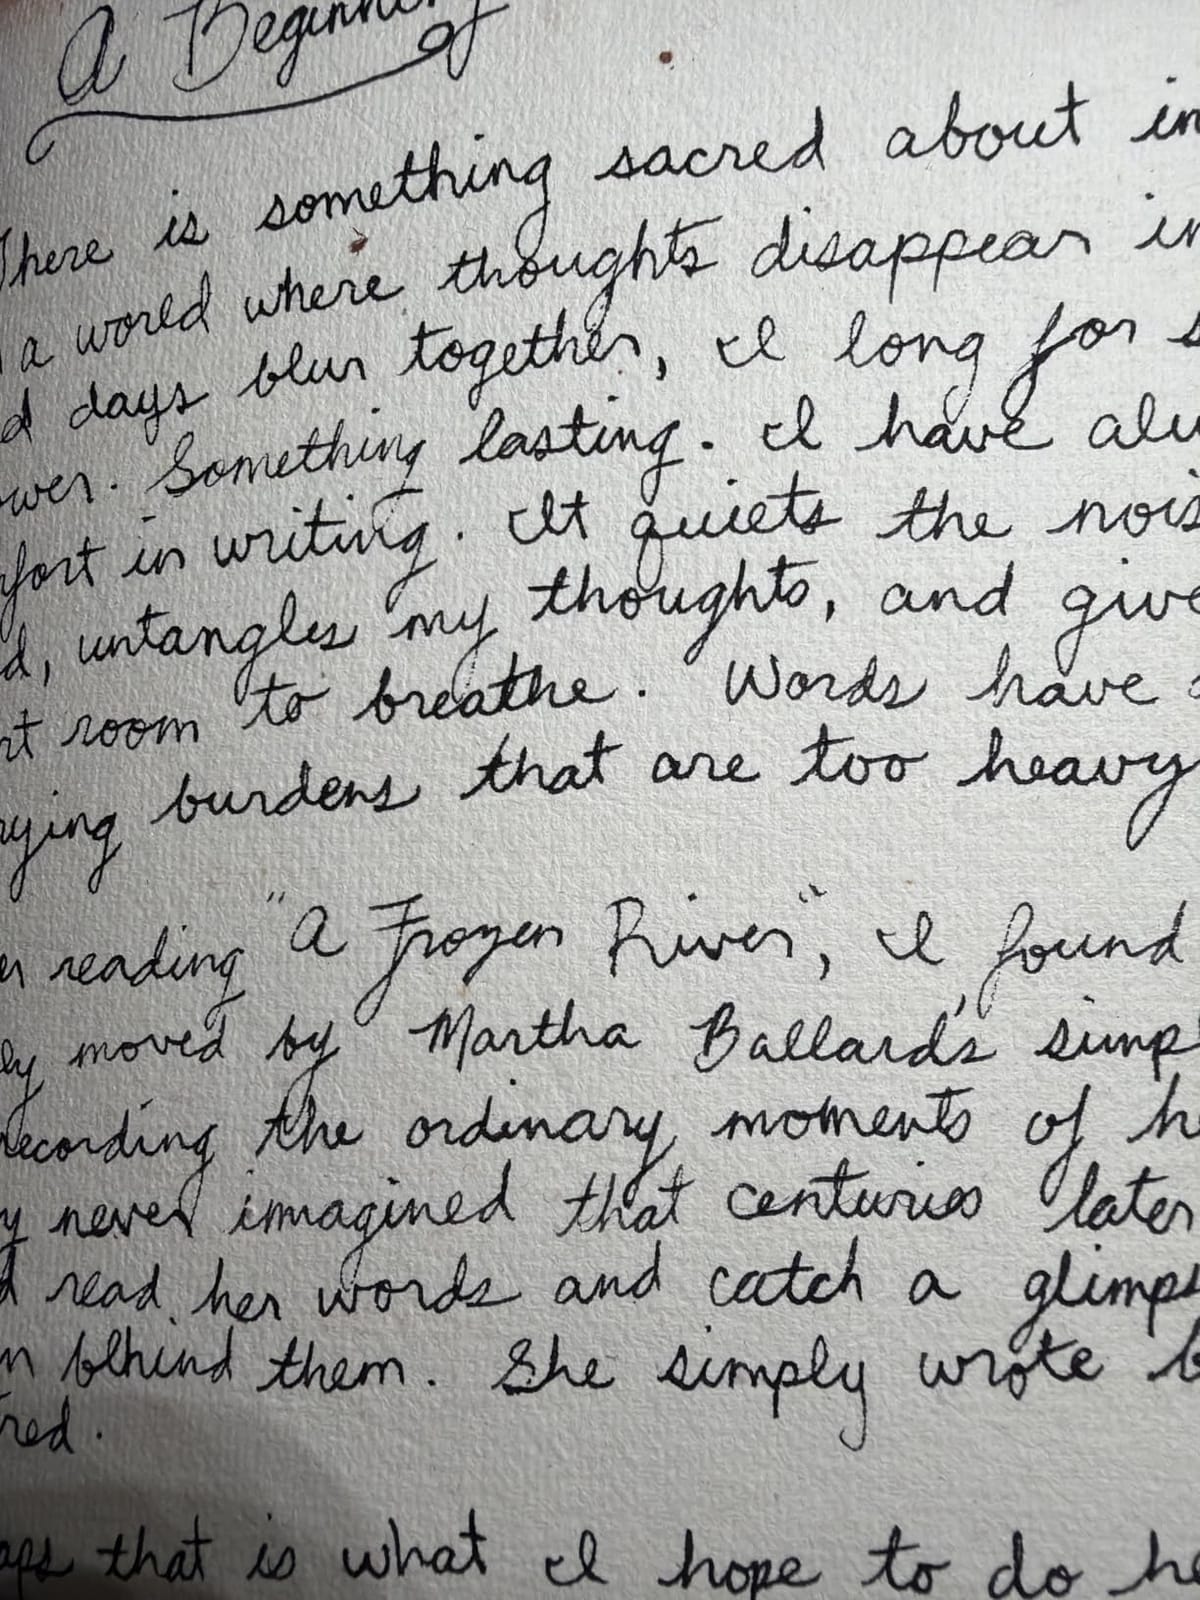 A Beginning
There is something sacred about in
a world where thoughts disappear in
d days blur together, I long for s
ower. Something lasting. I have alw
fort in writing. It quiets the nois
d, untangles my thoughts, and give
rt room to breathe. Words have a
rying burdens that are too heavy
er reading "A Frozen River", I found
ly moved by Martha Ballard's simp
recording the ordinary moments of he
y never imagined that centuries later
d read her words and catch a glimps
n behind them. She simply wrote b
red.
aps that is what I hope to do he